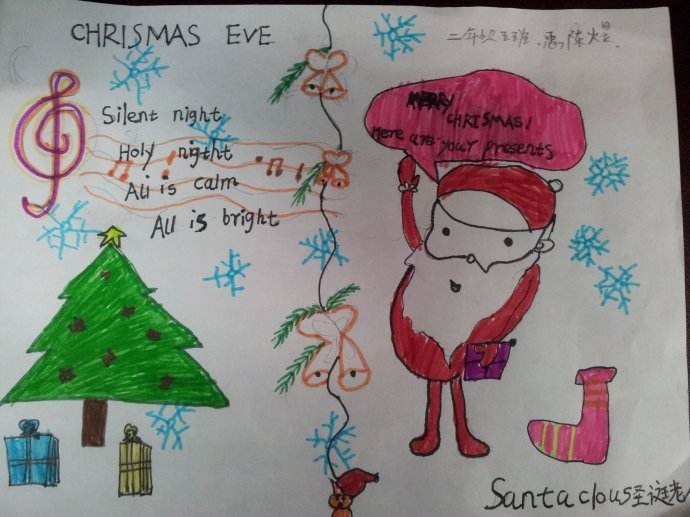 CHRISMAS EVE
二年级五班
Silent night
Holy night
All is calm
All is bright
MERRY
CHRISMAS!
Here are your presents
Santa clous圣诞老人